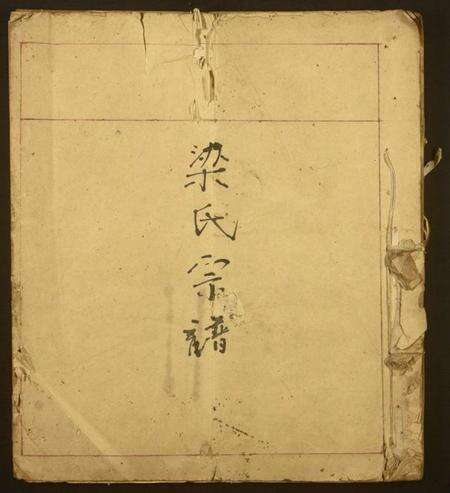 梁氏宗譜